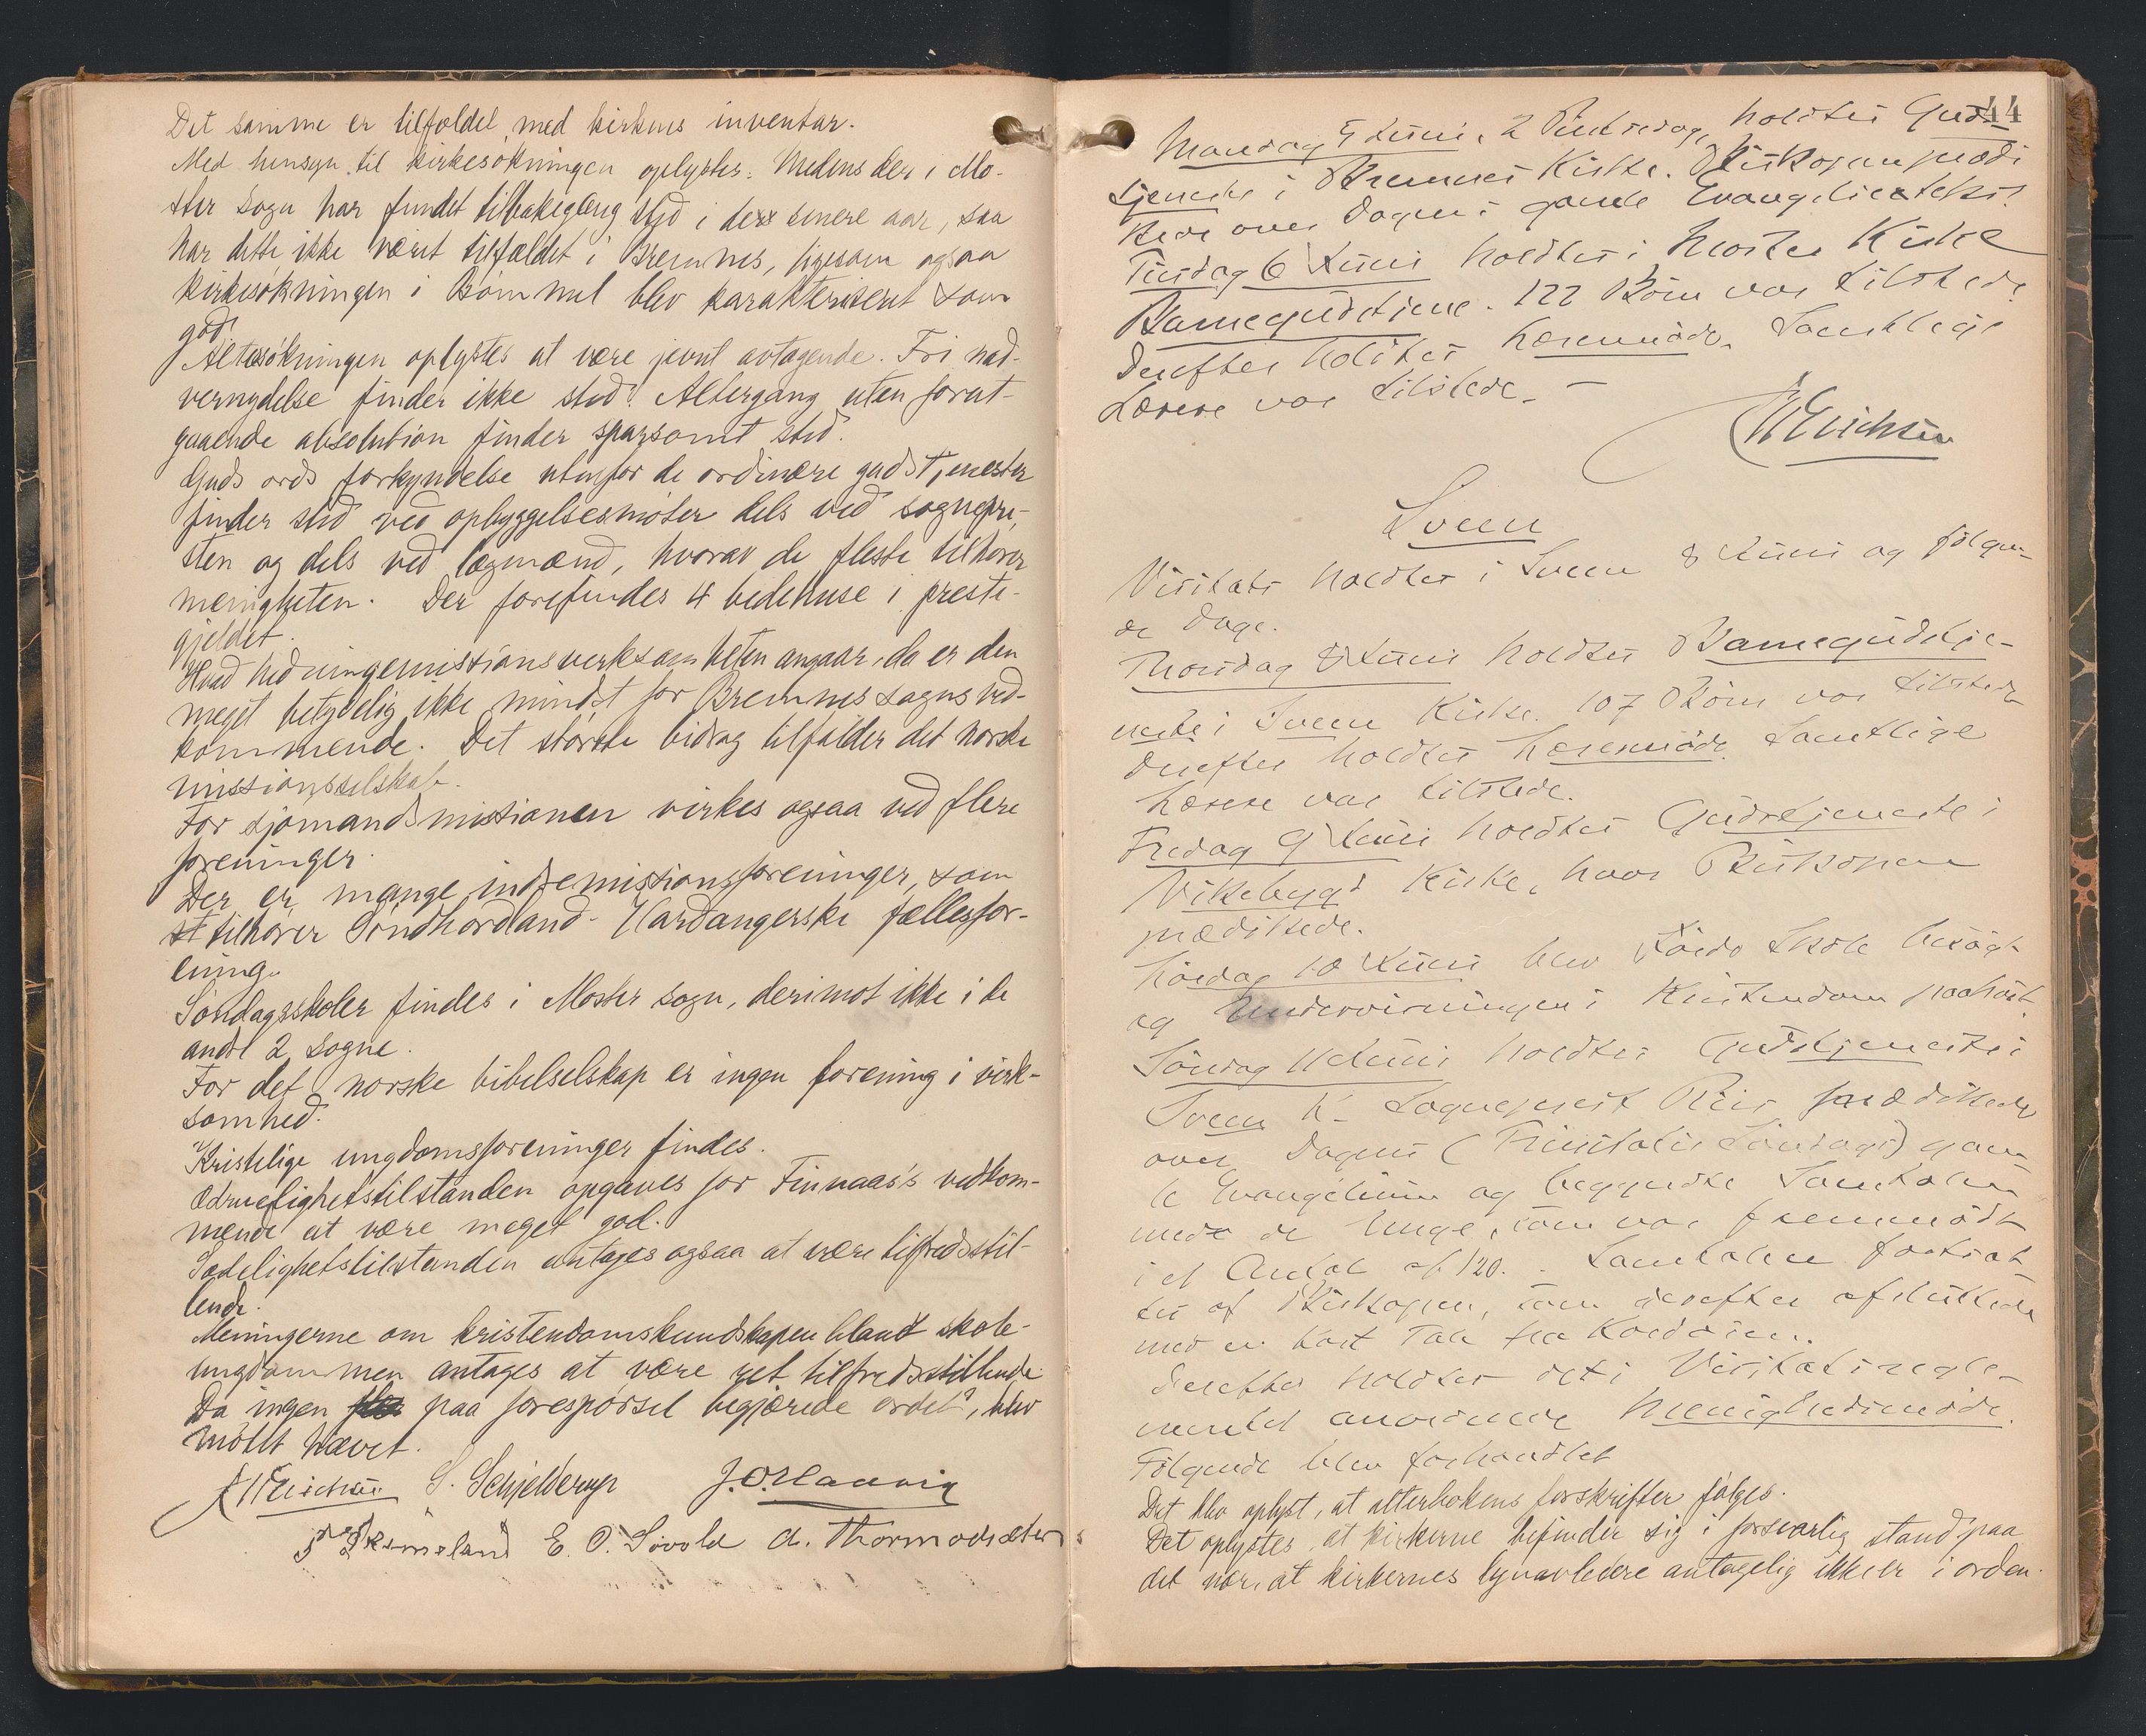 Det samme er tilfældet med kirkens inventar.
Med hensyn til kirkesökningen oplystes: Medens der i Mo-
ster sogn har fundet tilbakegang sted i de senere aar, saa
har dette ikke været tilfældet i Bremnes, ligesom ogsaa
kirkesökningen i Bömmel blev karakteriseret som
god.
Altersökningen oplystes at være jevnt avtagende. Fri nad-
vernydelse finder ikke sted. Altergang uten forut-
gaaende absolution finder sparsomt sted.
Guds ords forkyndelse utenfor de ordinære gudstjenester
finder sted ved opbyggelsesmöter dels ved sognepre-
sten og dels ved lægmænd, hvorav de fleste tilhörer
menigheten. Der forefindes 4 bedehuse i preste-
gjeldet.
Hvad hedningemissionsverksomheten angaar, da er den
meget betydelig ikke mindst for Bremnes sogns ved-
kommende. Det störste bidrag tilfalder det norske
missionsselskab.
For sjömandsmissionen virkes ogsaa ved flere
foreninger.
Der er mange indremissionsforeninger, som
tilhörer Söndhordland-Hardangerske fællesfor-
ening.
Söndagsskoler findes i Moster sogn, derimot ikke i de
andre 2 sogne.
For det norske bibelselskap er ingen forening i virk-
somhed.
Kristelige ungdomsforeninger findes.
Ædruelighetstilstanden opgaves for Finnaas's vedkom-
mende at være meget god.
Sædelighetstilstanden antages ogsaa at være tilfredsstil-
lende.
Meningerne om kristendomskundskapen blandt skole-
ungdommen antages at være ret tilfredsstillende.
Da ingen paa forespörsel begjærede ordet, blev
mötet hævet.
WErichsen S. Schjelderup J.O. Haavig
E. O. Sövold A. Thormodsæter
44
Mandag 5 Juni, 2 Pintsedag, holdtes Guds-
tjeneste i Bremnes Kirke. Biskopen prædi-
kede over Dagens gamle Evangelietekst.
Tirsdag 6 Juni holdtes i Moster Kirke
Barnegudstjene. 122 Börn var tilstede.
Derefter holdtes Læremöde. Samtlige
Lærere var tilstede. –
WErichsen
Sveen
Visitats holdtes i Sveen 8 Juni og fölgen-
de Dage.
Thorsdag 8 Juni holdtes Barnegudstje-
neste i Sveen Kirke. 107 Börn var tilstede
Derefter holdtes Læremöde. Samtlige
Lærere var tilstede.
Fredag 9 Juni holdtes Gudstjeneste i
Vikebygd Kirke, hvor Biskopen
prædikede.
Lördag 10 Juni blev Skole besögt
og Undervisningen i Kristendom paahört.
Söndag 11 Juni holdtes Gudstjeneste i
Sveen K. Sogneprest prædikede
over Dagens (Trinitatis Söndags) gam-
le Evangelium og begyndte Samtalen
med de Unge, som var fremmödt
i et Antal af 120. Samtalen fortsat-
tes af Biskopen, som derefter afsluttede
med en kort Tale fra Kordören.
Derefter holdtes det i Visitatsregle-
mentet anordnede Menighedsmöde.
Fölgende blev forhandlet
Det blev oplyst, at alterbokens forskrifter fölges.
Det oplystes, at kirkerne befinder sig i forsvarlig stand paa
det nær, at kirkernes lynavledere antagelig ikke er i orden.